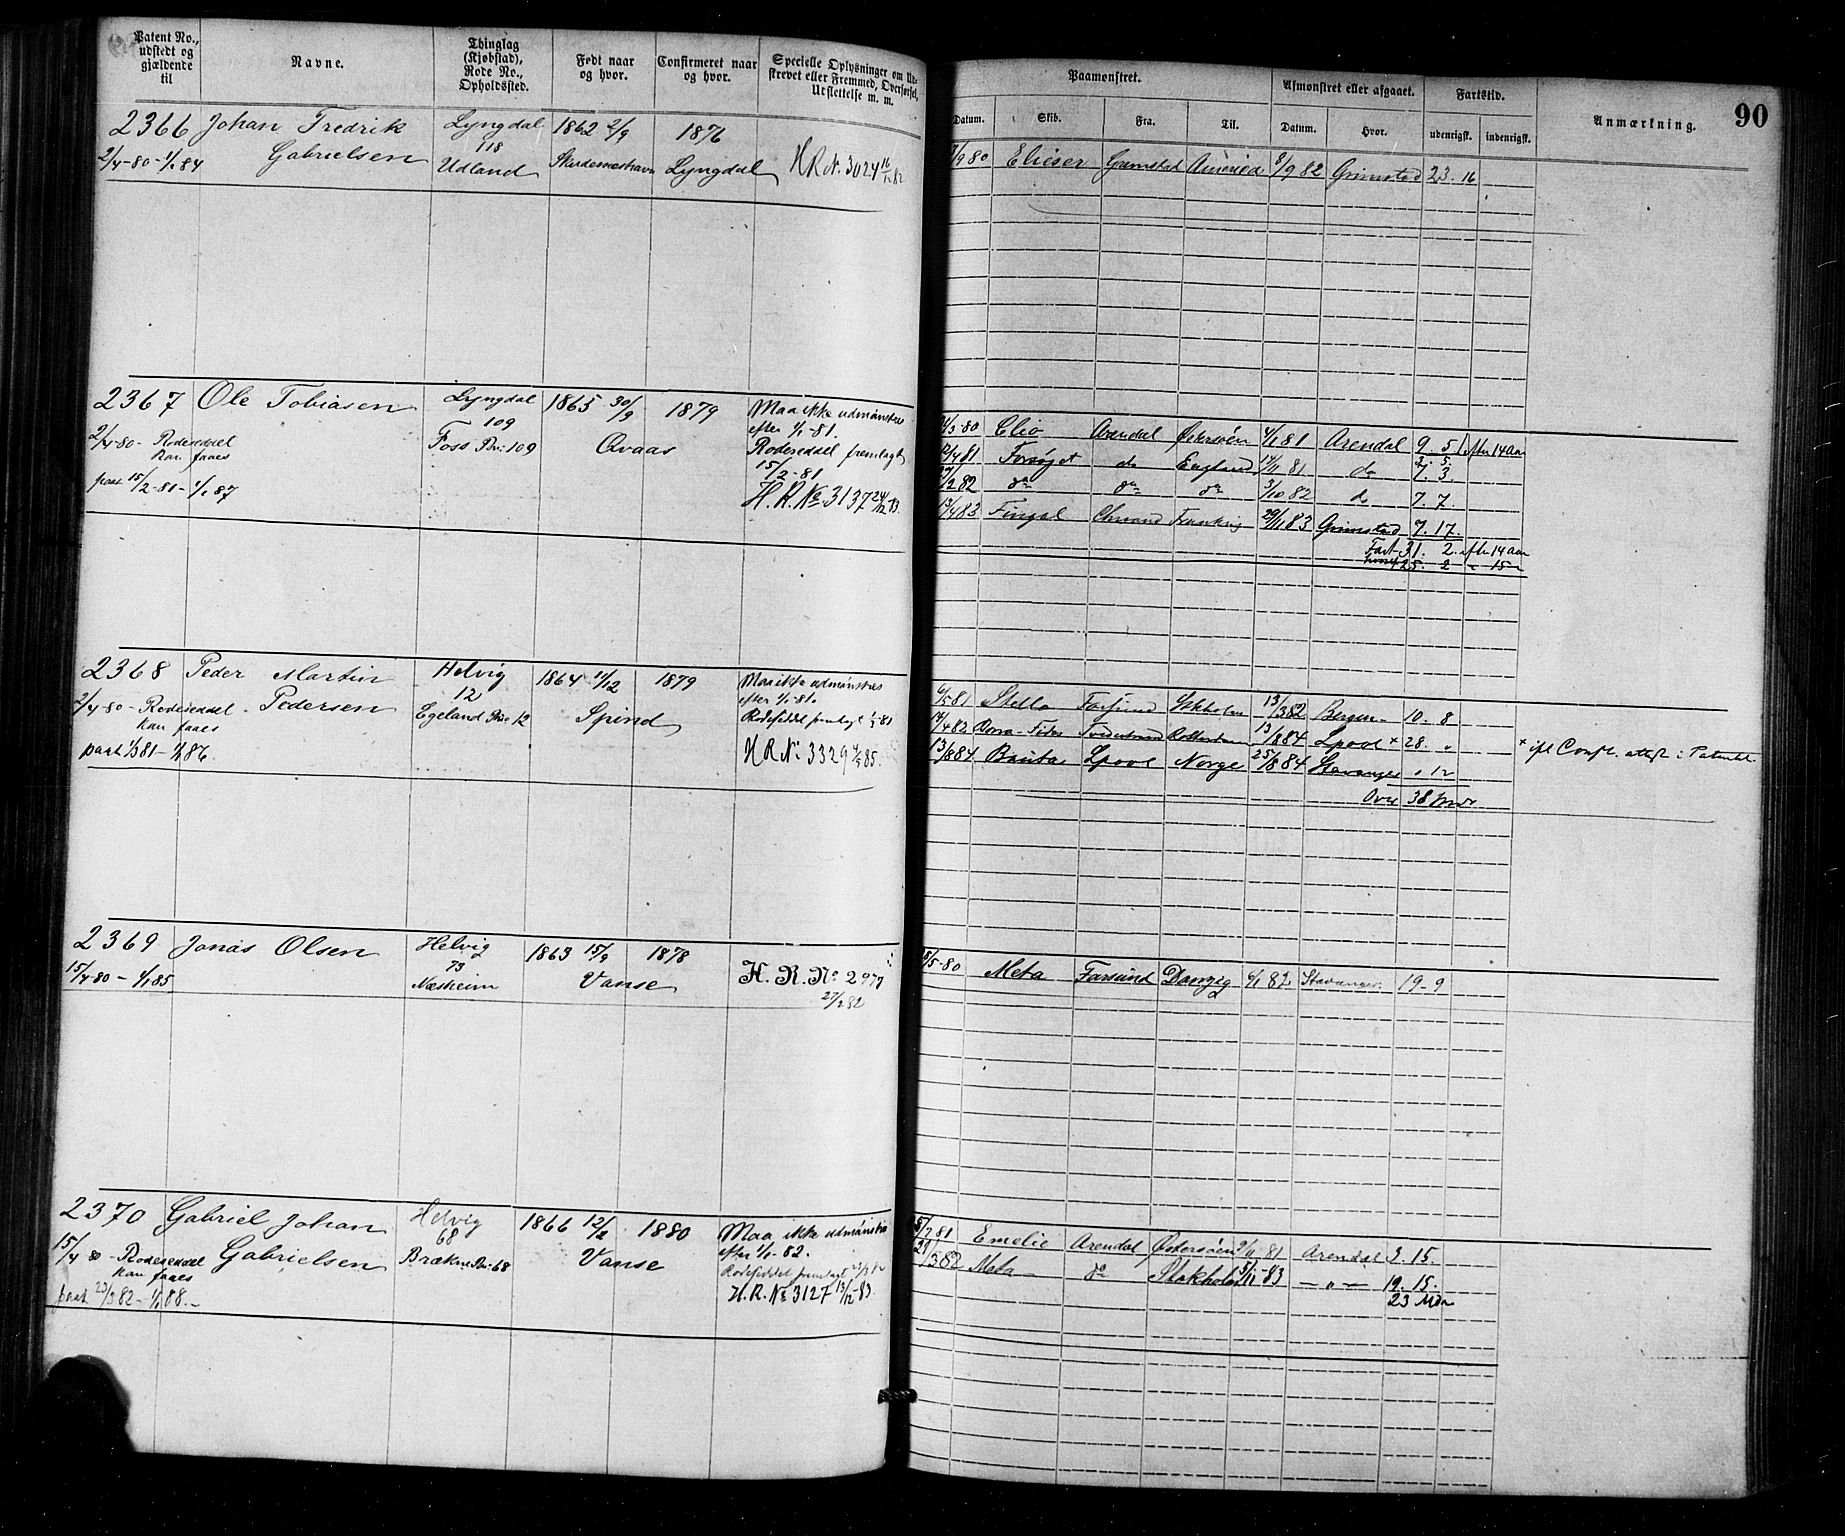 Patent No., udstedt og gjældende til
Navne.
Thinglag (Kjøbstad), Rode No., Opholdssted.
Født naar og hvor.
Confirmeret naar og hvor.
Specielle Oplysninger om Udskrevet eller Fremmed, Overførsel, Udslettelse m. m.
Paamønstret.
Afmønstret eller afgaaet.
Fartstid.
Anmærkning.
90
Datum. Skib. Fra. Til. Datum. Hvor. udenrigsk. indenrigsk.
2366 Johan Fredrik Lyngdal 1862 2/9 1876
Gabrielsen 118
2/4-80-1/1 84 Udland Skudesneshavn Lyngdal H R N. 3024
9 80 Elieser Grimstad America 8/9 82 Grimstad 23. 16
2367 Ole Tobiasen Lyngdal 1865 30/9 1879 Maa ikke udmønstres
109 efter 1/1-81.
2/4-80- Rodeseddel Foss No: 109 Qvaas Rodeseddel fremlagt
kan faaes 15/2-81
paat 15/2-81-1/1 87 H. R. No 3137
80 Clio Arendal Østersøen 81 Arendal 9. 5 efter 14 Aar
81 Forsøget do England 17/11 81 do 7. 3.
82 do do do 3/10 82 do 7. 7.
83 Fingal 29/11 83 Grimstad 7. 17.
Fart 31. 2. efter 14 Aar
25. 2 " 15 "
2368 Peder Martin Helvig 1864 11/12 1879 Maa ikke udmønstres
Pedersen 12 efter 1/1-81.
2/4-80- Rodeseddel Egeland No 12 Spind Rodeseddel fremlagt
kan faaes
paat 1/3 81-1/1 86. H R N: 3329
81 Stella Farsund Stkholm 13/3 82 Bergen 10. 8
Tvedestrand Rotterdam 13/8 84 Lpool x 28. "
13/6 84 Lpool Norge 25/8 84 Stavanger " 12
Over 38 Mdr
x ifl Consl. attest i Patentet
2369 Jonas Olsen Helvig 1863 15/9 1878
73
15/4-80-1/1 85 Næsheim Vanse H. R. No 2977
27/2 82
5-80 Meta Farsund Danzig 82 Stavanger 19-9
2370 Gabriel Johan Helvig 1866 12/2 1880 Maa ikke udmønstres
68 efter 1/1-82.
15/4 80-Rodeseddel Gabrielsen Brækne No: 68 Vanse Rodeseddel fremlagt 23/3 82
kan faaes
paat 23/3 82-1/1 88.- H. R. No 3127 13/12-83
81 Emelie Arendal Østersøen 9/11 81 Arendal 3. 15.
21/3 82 Meta do Stokholm 5/11-83 -"- 19. 15.
23 Mdr